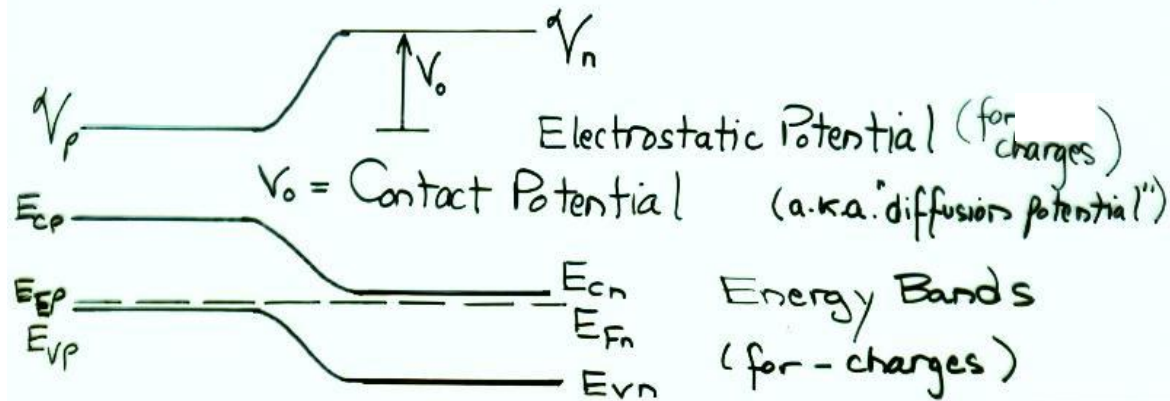 𝒱n
V₀
𝒱p
Electrostatic Potential (for charges)
V₀ = Contact Potential (a.k.a. "diffusion potential")
Ecp
Ecn
EFp
EFn
Evp
Evn
Energy Bands
(for - charges)